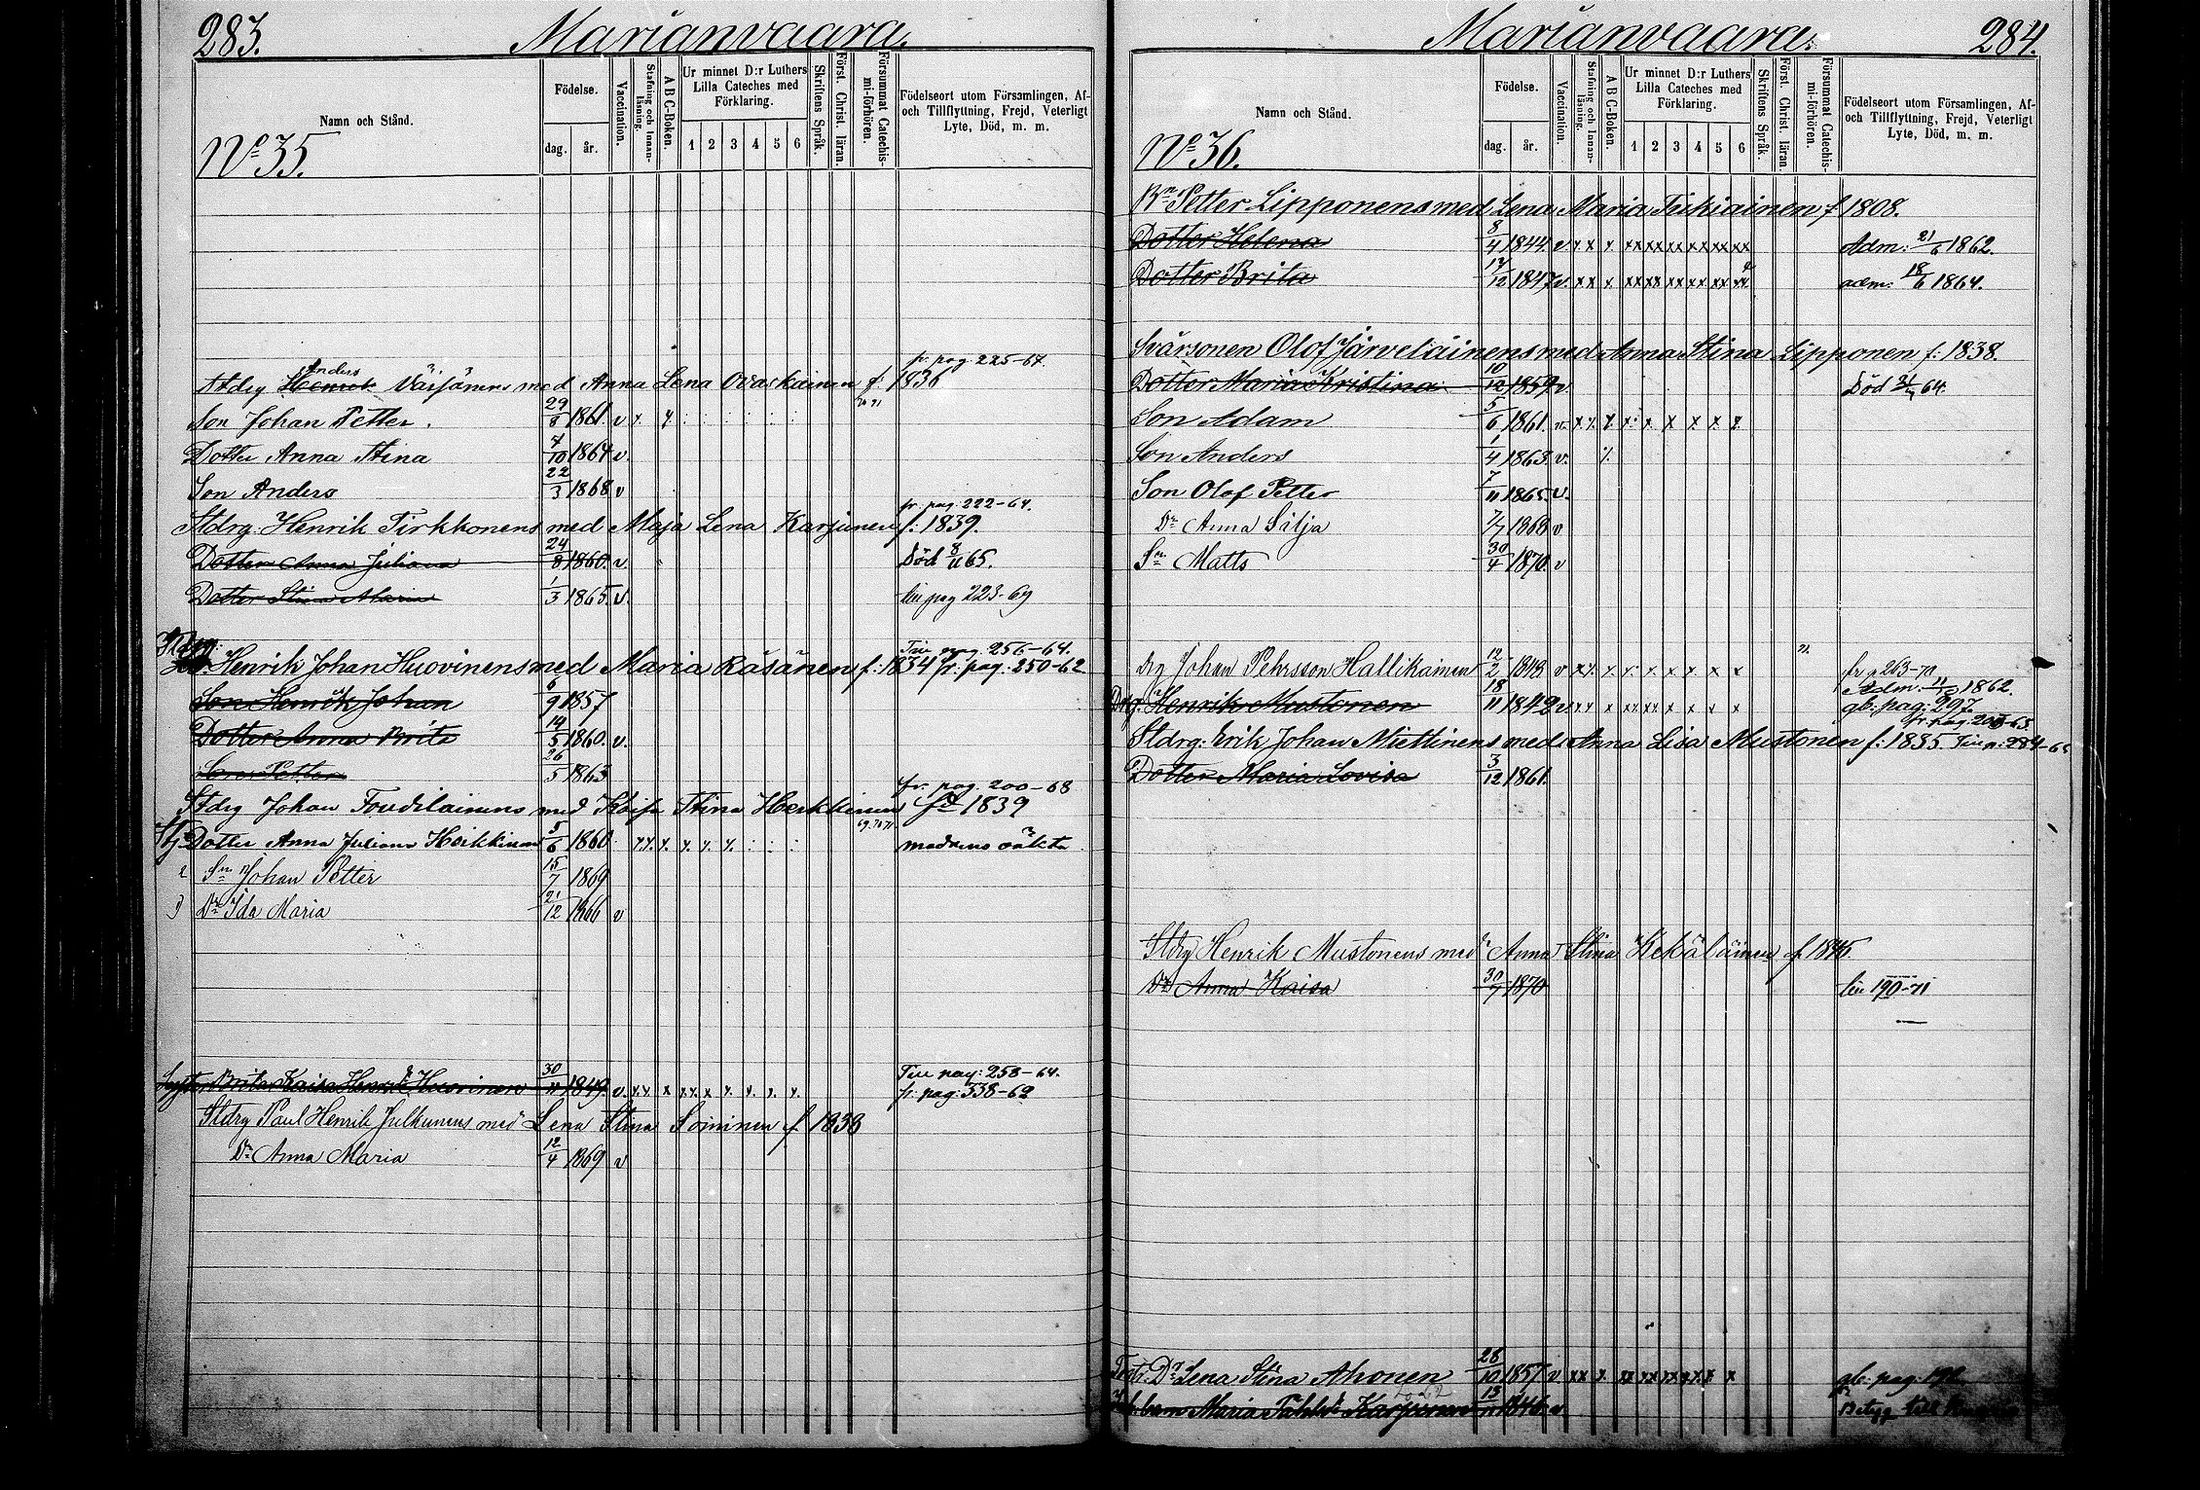 283. Marianvaara.
Namn och Stånd.
Födelse.
dag. år.
Vaccination.
Stafning och Innan-läsning.
A B C-Boken.
Ur minnet D:r Luthers Lilla Cateches med Förklaring.
1 2 3 4 5 6
Skriftens Språk.
Först. Christ. läran.
Försummat Catechis-mi-förhören.
Födelseort utom Församlingen, Af- och Tillflyttning, Frejd, Veterligt Lyte, Död, m. m.
No 35.
fr. pag. 225-67.
Anders
Stdrg Henrik med Anna Lena Ovaskainen f: 1836
Son Johan Petter. 29/8 1861. v
Dotter Anna Stina 4/10 1864 v.
Son Anders 22/3 1868 v
fr. pag. 222-64.
Stdrg: Henrik Tirkkonens med Maja Lena Karjunen f: 1839.
Dotter Anna Juliana 24/8 1860. v. Död 8/11 65.
Dotter Stina Maria 1/3 1865. v. pag 223-69
Stdrg: Tin pag. 256-64.
Henrik Johan Huovinens med Maria Räsänen f: 1834 fr. pag. 250-62
Son Henrik Johan 6/9 1857
Dotter Anna Brita 14/5 1860. v.
Son Petter 26/5 1863
fr. pag. 200-68
Stdrg Johan med Kaisa Stina Heikkinen 1839
69. 70 71
Dotter Anna Juliana Heikkinen 5/6 1860 modrens oäkta
Sn Johan Petter 15/7 1869
Dr Ida Maria 2/12 1866 v
Tin pag: 258-64.
Syster Brita Kaisa Huovinen 30/11 1849. v. fr. pag: 338-62
Stdrg Paul Henrik Julkunens med Lena Stina Soininen f 1838
Dr Anna Maria 12/4 1869 v
Marianvaara. 284.
Namn och Stånd.
Födelse.
dag. år.
Vaccination.
Stafning och Innan-läsning.
A B C-Boken.
Ur minnet D:r Luthers Lilla Cateches med Förklaring.
1 2 3 4 5 6
Skriftens Språk.
Först. Christ. läran.
Försummat Catechis-mi-förhören.
Födelseort utom Församlingen, Af- och Tillflyttning, Frejd, Veterligt Lyte, Död, m. m.
No 36.
Bn Petter Lipponens med Lena Maria Tiikiainen f: 1808.
Dotter Helena 8/4 1844. v Adm: 21/6 1862.
Dotter Brita 17/12 1847. v. adm: 18/6 1864.
Svärsonen Olof Järveläinens med Anna Stina Lipponen f: 1838.
Dotter Maria Kristina 10/12 1859. v. Död 64.
Son Adam 5/6 1861. v.
Son Anders 1/4 1863. v.
Son Olof Petter 7/11 1865. v.
Dr Anna Silja 7/7 1868 v
Sn Matts 30/4 1870. v
Drg Johan Pehrsson Hallikainen 12/2 1848 v fr p 263-70
Adm: 1862.
Drg. Henrik Mustonen 18/11 1842 v gb: pag: 297
Stdrg: Erik Johan Miettinens med Anna Lisa Mustonen f: 1835.
Dotter Maria Lovisa 3/12 1861.
Stdrg Henrik Mustonens med Anna Stina Kekäläinen f 1845.
Dr Anna Kaisa 30/7 1870 190-71
Dr Lena Stina Ahonen 28/10 1857. v gb: pag: 192
barn Maria Karjunen 13/11 1846. v. Betyg till